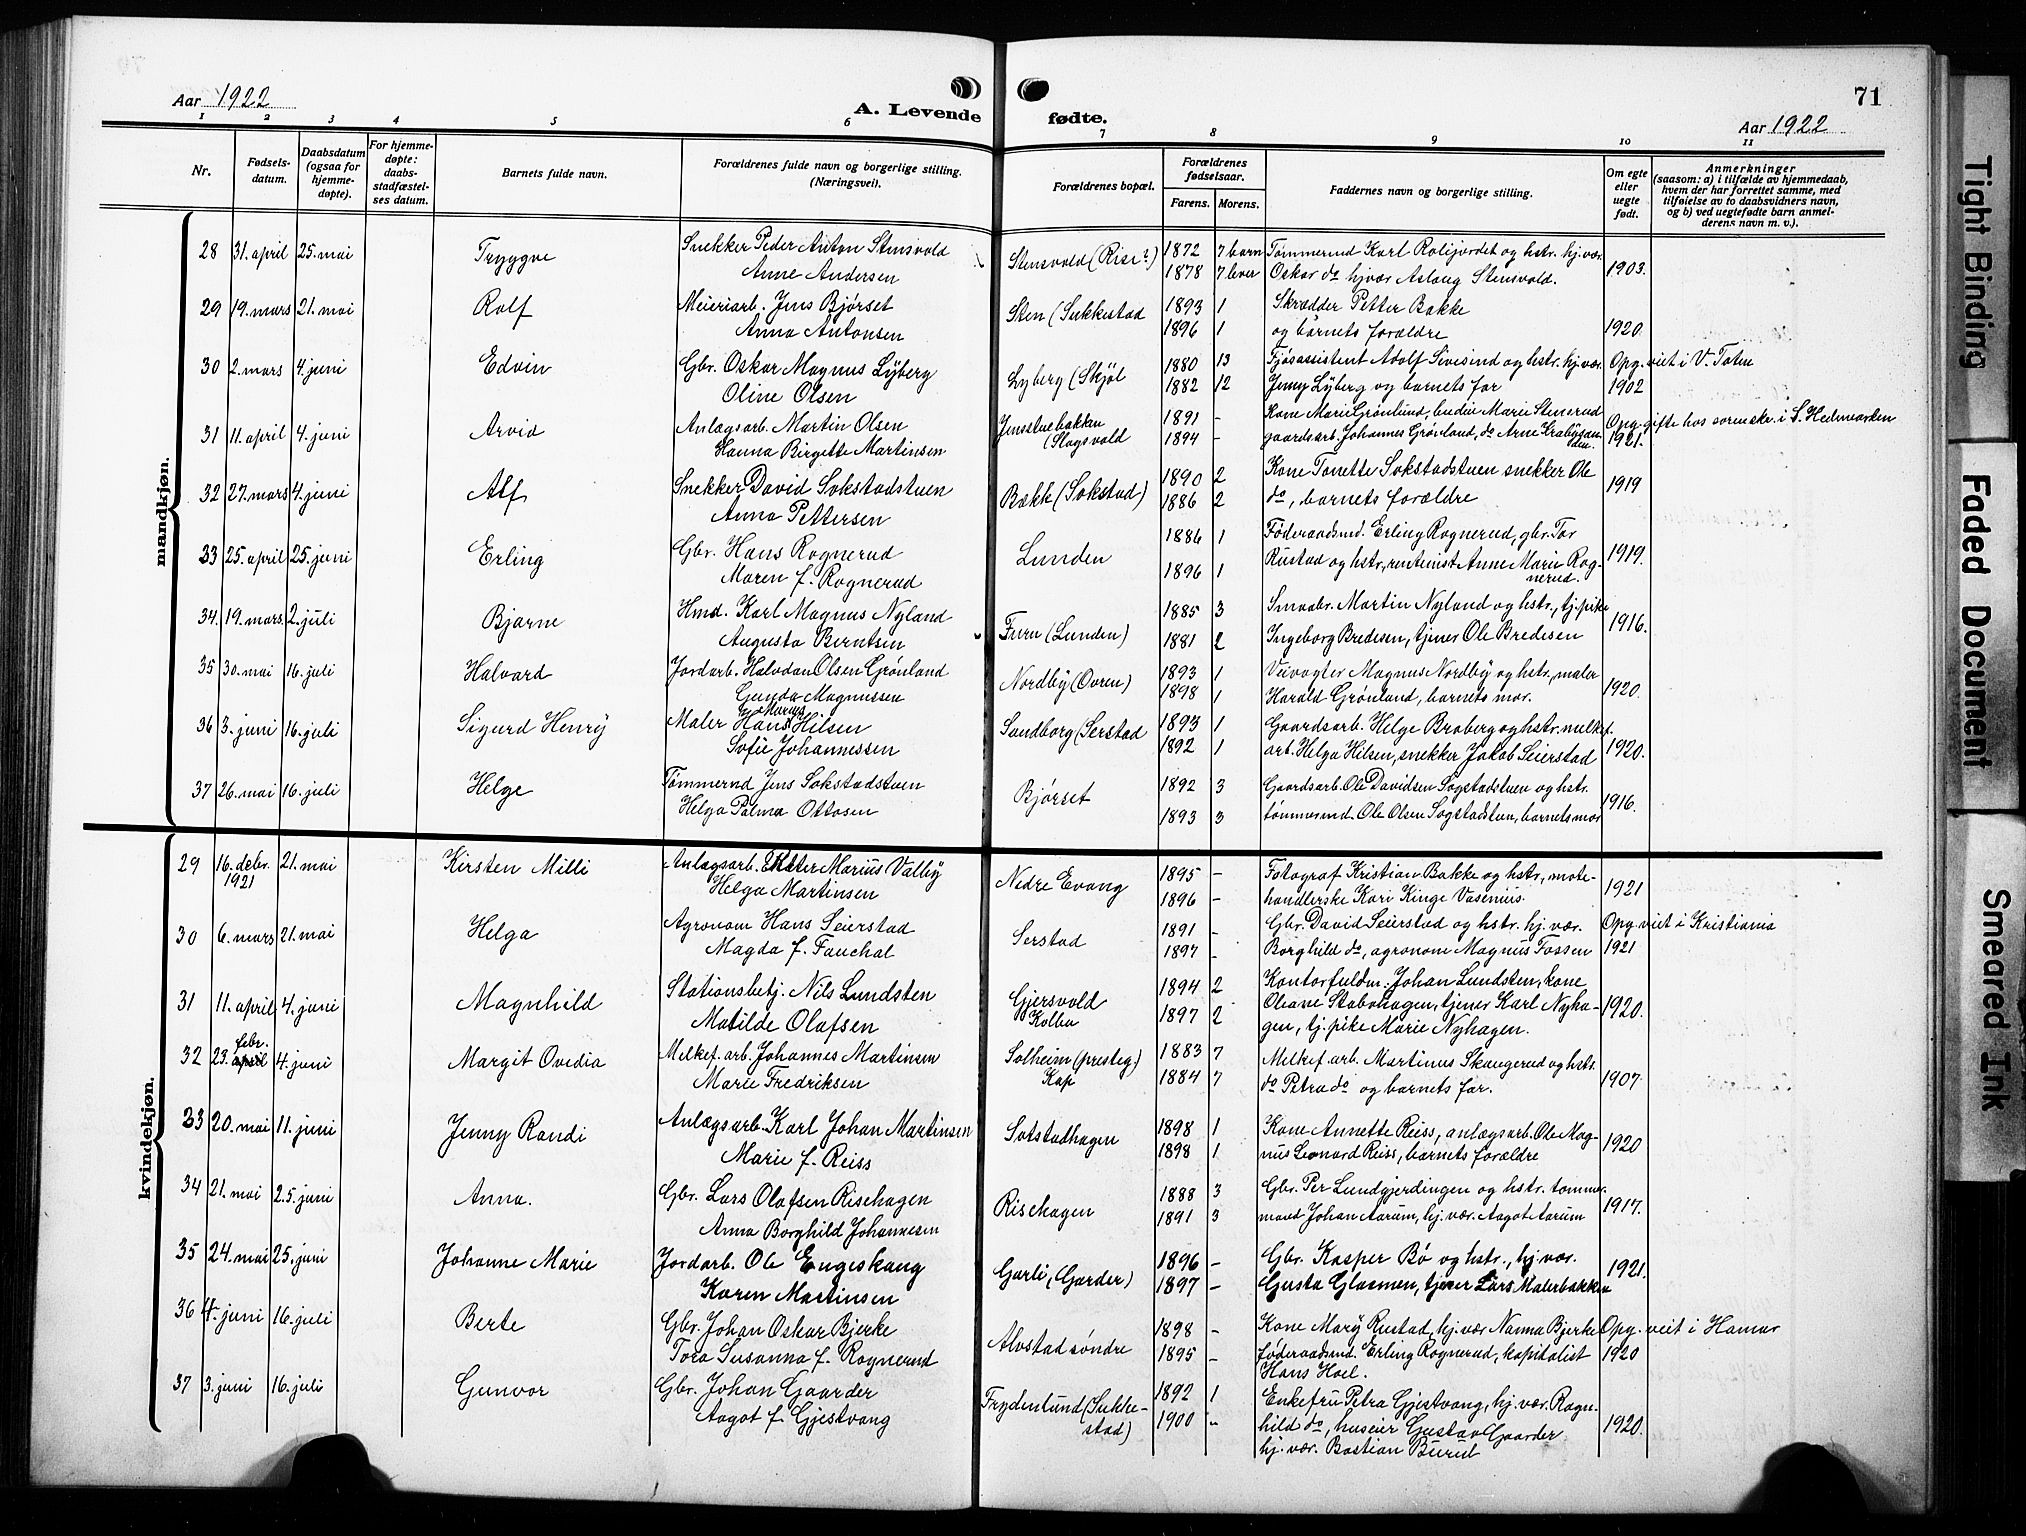 Aar 1922
A. Levende fødte.
Aar 1922
71
1 2 3 4 5 6 7 8 9 10 11
Nr.
Fødsels-
datum.
Daabsdatum
(ogsaa for
hjemme-
døpte).
For hjemme-
døpte:
daabs-
stadfæstel-
ses datum.
Barnets fulde navn.
Forældrenes fulde navn og borgerlige stilling.
(Næringsvei).
Forældrenes bopæl.
Forældrenes
fødselsaar.
Farens. Morens.
Faddernes navn og borgerlige stilling.
Om egte
eller
uegte
født.
Anmerkninger
(saasom: a) i tilfælde av hjemmedaab,
hvem der har forrettet samme, med
tilføielse av to daabsvidners navn,
og b) ved uegtefødte barn anmel-
derens navn m. v.).
mandkjøn.
28 31. april 25. mai Trygve Snekker Peder Anton Stensvold Stensvold (Risi?) 1872 7 barn Tømmermd Karl Roligjordet og hstr. hj.vær.
Anne Andersen 1878 7 lever Oskar do hjvær Aslaug Stensvold. 1903.
29 19. mars 21. mai Rolf Meieriarb. Jens Bjørset Sten (Sukkestad 1893 1 Skrædder Petter Bakke
Anna Antonsen 1896 1 og barnets forældre 1920.
30 2. mars 4. juni Edvin Gbr. Oskar Magnus Lyberg Lyberg (Skjøl 1880 13 Fjøsassistent Adolf Sivesind og hstr. hj.vær. Opg. viet i V. Toten
Oline Olsen 1882 12 Jenny Lyberg og barnets far 1902
31 11. april 4. juni Arvid Anlagsarb. Martin Olsen Jensstuebakken 1891 - Kone Marie Grønlund, budeie Marie Stenerud Opg. gifte hos sorenskr. i S. Hedmarken
Hanna Birgitte Martinsen (Slagsvold 1894 - gaardsarb. Johannes Grønland, do Arne Krabysan- 1921.
den.
32 27. mars 4. juni Alf Snekker David Sokstadstuen Bække (Sokstad) 1890 2 Kone Tonette Sokstadstuen snekker Ole 1919
Anna Pettersen 1886 2 do, barnets forældre
33 25. april 25. juni Erling Gbr. Hans Rognerud Lunden 1886 1 Føderaadsmd. Erling Rognerud, gbr. Tor
Maren f. Rognerud 1896 1 Rustad og hstr., rentenist Anne Marie Rog- 1919.
nerud.
34. 19. mars. 2. juli Bjarne Hmd. Karl Magnus Nyland Furu (Lunden) 1885 3 Smaabr. Martin Nyland og hstr., tj.pike 1916.
Augusta Berntsen 1881 2 Ingeborg Bredesen, tjener Ole Bredesen
35 30. mai 16. juli Halvard Jordarb. Halvdan Olsen Grønland Nordby (Ovren) 1893 1 Veivogter Magnus Nordby og hstr., maler
Gunda Magnussen 1898 1 Harald Grønland, barnets mor. 1920.
36 3. juni 16. juli Sigurd Henry Maler Hans Marius Hilsen Sandborg (Serstad 1893 1 Gaardsarb. Helge Braberg og hstr. melkef.
Sofie Johannessen 1892 1 arb. Helga Hilsen, snekker Jakob Seierstad 1920.
37 26. mai 16. juli Helge Tømmermd Jens Sokstadstuen Bjørset 1892 3 Gaardsarb. Ole Davidsen Sogstadstuen og hstr.
Helga Palma Ottosen 1893 3 tømmermd. Ole Olsen Sogstadstuen, barnets mor 1916.
kvindekjøn.
29 16. debr. 21. mai Kirsten Milli Anlagsarb. Petter Marius Valby Nedre Evang 1895 - Fotograf Kristian Bakke og hstr., mote-
1921 Helga Martinsen 1896 - handlerske Kari Kinge Vasenius. 1921
30 6. mars 21. mai Helga Agronom Hans Seierstad Serstad 1891 - Gbr. David Seierstad og hstr. hj. vær. Opg. viet i Kristiania
Magda f. Fauchal 1897 - Borghild do, agronom Magnus Fossen 1921
31 11. april 4. juni Magnhild Stationsbetj. Nils Lundsten Gjersvold 1894 2 Kontorfuldm. Johan Lundsten, kone
Matilde Olafsen Kolbu 1897 2 Oleane Stabohagen, tjener Karl Nyha- 1920.
gen, tj. pike Marie Nyhagen.
32 23. april febr. 4. juni Margit Ovidia Melkef. arb. Johannes Martinsen Solheim (presteg) 1883 7 Melkef. arb. Martinus Skaugerud og hstr.
Marie Fredriksen Kap 1884 7 do Petra do og barnets far. 1907.
33 20. mai 11. juni Jenny Randi Anlægsarb. Karl Johan Martinsen Sotstadhagen 1898 1 Kone Annette Reiss, anlægsarb. Ole Mag-
Marie f. Reiss 1898 1 nus Leonard Reiss, barnets forældre 1920
34 21. mai 25. juni Anna. Gbr. Lars Olafsen Risehagen Risehagen 1888 3 Gbr. Per Lundgjerdingen og hstr. tømmer-
Anna Borghild Johannesen 1891 3 mand Johan Aarum, hj. vær. Aagot Aarum 1917.
35 24. mai 25. juni Johanne Marie Jordarb. Ole Engeskaug Garli, (Garder) 1896 - Gbr. Kasper Bø og hstr., hj.vær.
Karen Martinsen 1897 - Gusta Glasmen, tjener Lars Malerbakken 1921.
36 4. juni 16. juli Berte Gbr. Johan Oskar Bjerke Alvstad søndre 1898 - Kone Mary Rustad, hj. vær Nanna Bjerke Opg. viet i Hamar
Tora Susanna f. Rognerud 1895 - føderaadsmd. Erling Rognerud, kapitalist 1920
Hans Hoel.
37 3. juni 16. juli Gunvor Gbr. Johan Gaarder Frydenlund (Sukke- 1892 1 Enkefru Petra Gjestvang, hj. vær. Ragn-
Aagot f. Gjestvang stad) 1900 - hild do, huseier Gustav Gaarder 1920.
hj. vær. Bastian Burud
Tight Binding
Faded Document
Smeared Ink